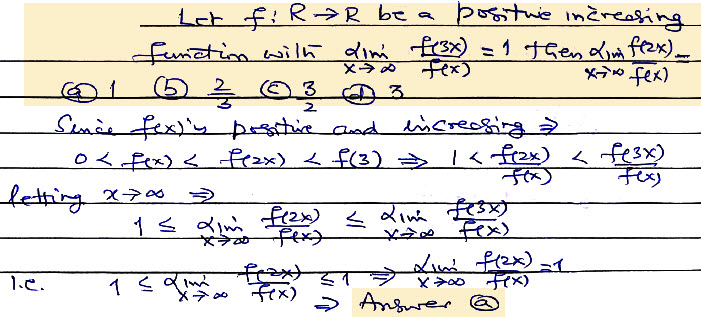 Let f: R → R be a positive increasing
function with lim x→∞ f(3x)/f(x) = 1 then lim x→∞ f(2x)/f(x) =
(a) 1 (b) 2/3 (c) 3/2 (d) 3
Since f(x) is positive and increasing ⇒
0 < f(x) < f(2x) < f(3) ⇒ 1 < f(2x)/f(x) < f(3x)/f(x)
letting x→∞ ⇒
1 ≤ lim x→∞ f(2x)/f(x) ≤ lim x→∞ f(3x)/f(x)
i.e. 1 ≤ lim x→∞ f(2x)/f(x) ≤ 1 ⇒ lim x→∞ f(2x)/f(x) = 1
⇒ Answer (a)